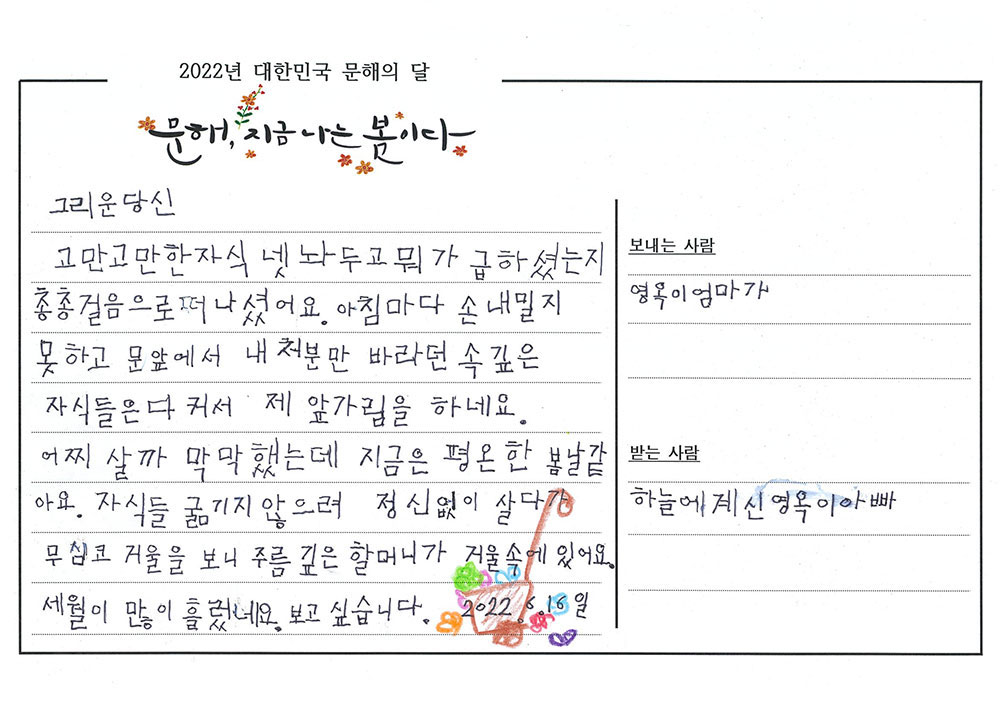 2022년 대한민국 문해의 달
문해, 지금 나는 봄이다
그리운당신
고만고만한자식 넷 놔두고 뭐가 급하셨는지
총총걸음으로떠나셨어요. 아침마다 손 내밀지
못하고 문앞에서 내 처분만 바라던 속 깊은
자식들은다 커서 제 앞가림을 하네요.
어찌 살까 막막했는데 지금은 평온한 봄날같
아요. 자식들 굶기지않으려 정신없이 살다가
무심코 거울을 보니 주름 깊은 할머니가 거울속에 있어요.
세월이 많이 흘렀네요. 보고 싶습니다. 2022.6.16일
보내는 사람
영옥이엄마가
받는 사람
하늘에계신영옥이아빠